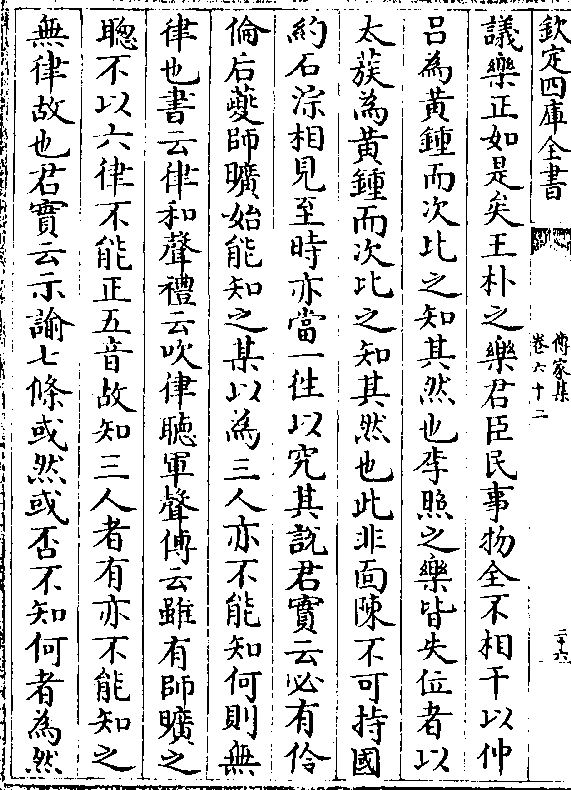 欽定四庫全書
傳家集
卷六十二
二十六
議樂正如是矣王朴之樂君臣民事物全不相干以仲
呂為黃鍾而次比之知其然也李照之樂皆失位者以
太蔟為黃鍾而次比之知其然也此非面陳不可持國
約石淙相見至時亦當一徃以究其說君實云必有伶
倫后夔師曠始能知之某以為三人亦不能知何則無
律也書云律和聲禮云吹律聽軍聲傳云雖有師曠之
聰不以六律不能正五音故知三人者有亦不能知之
無律故也君實云示諭七條或然或否不知何者為然